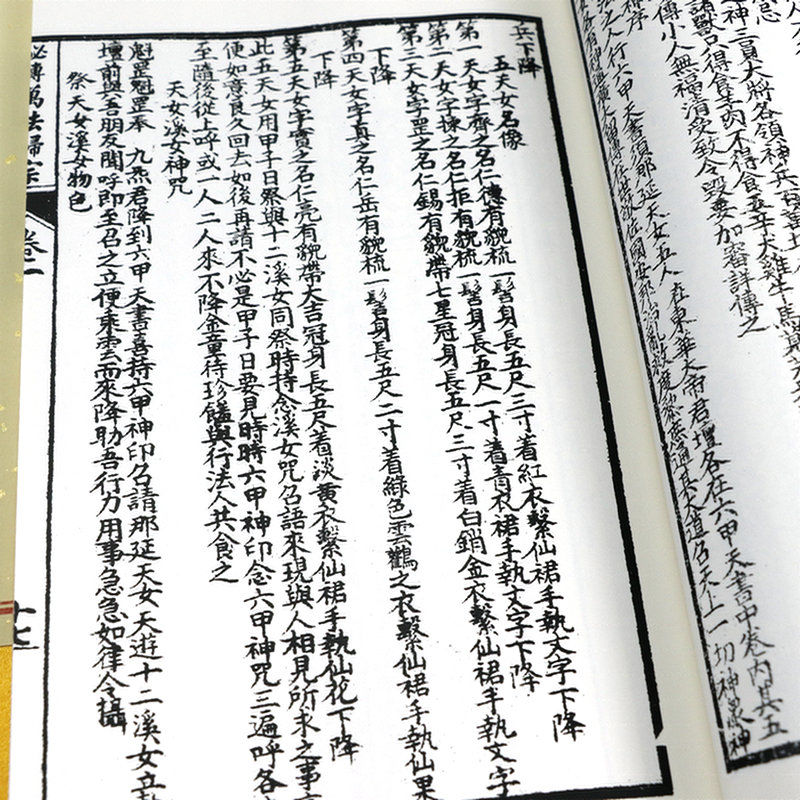 忌
神三員大將各領神兵百萬
諸獸只得食羊肉不得食五辛犬雞牛馬
傳小人無福消受致令毀要加審詳傳之
之法人行六甲天書須那延天女五人在東華大帝君壇各在六甲天書中卷內其五
兵下降
五天女名像
第一天女字齊之名仁德有貌梳一髻身長五尺三寸着紅衣繫仙裙手執文字下降
第二天女字揀之名仁拒有貌梳一髻身長五尺一寸着青衣裙手執文字下降
第三天女字罡之名仁錫有貌帶七星冠身長五尺三寸着白銷金衣繫仙裙手執文字
下降
第四天女字真之名仁岳有貌梳一髻身長五尺二寸着綠色雲鶴之衣繫仙裙手執仙果
下降
第五天女字寶之名仁亮有貌帶大吉冠身長五尺着淡黃衣繫仙裙手執仙花下降
此五天女用甲子日祭與十二溪女同祭時持念溪女咒名語來現與人相見所求之事
便如意良久回去如後再請不必是甲子日要見時時六甲神印念六甲神咒三遍呼各
至隨後從上呼或一人二人來不降金童待珍饈與行法人共食之
天女溪女神咒
魁罡魁罡奉九炁君降到六甲天書喜持六甲神印名請那延天女天遊十二溪女立
壇前與吾朋友聞呼即至召之立便乘雲而來降助吾行力用事急急如律令攝
祭天女溪女物色
秘傳萬法歸宗
卷一
十七